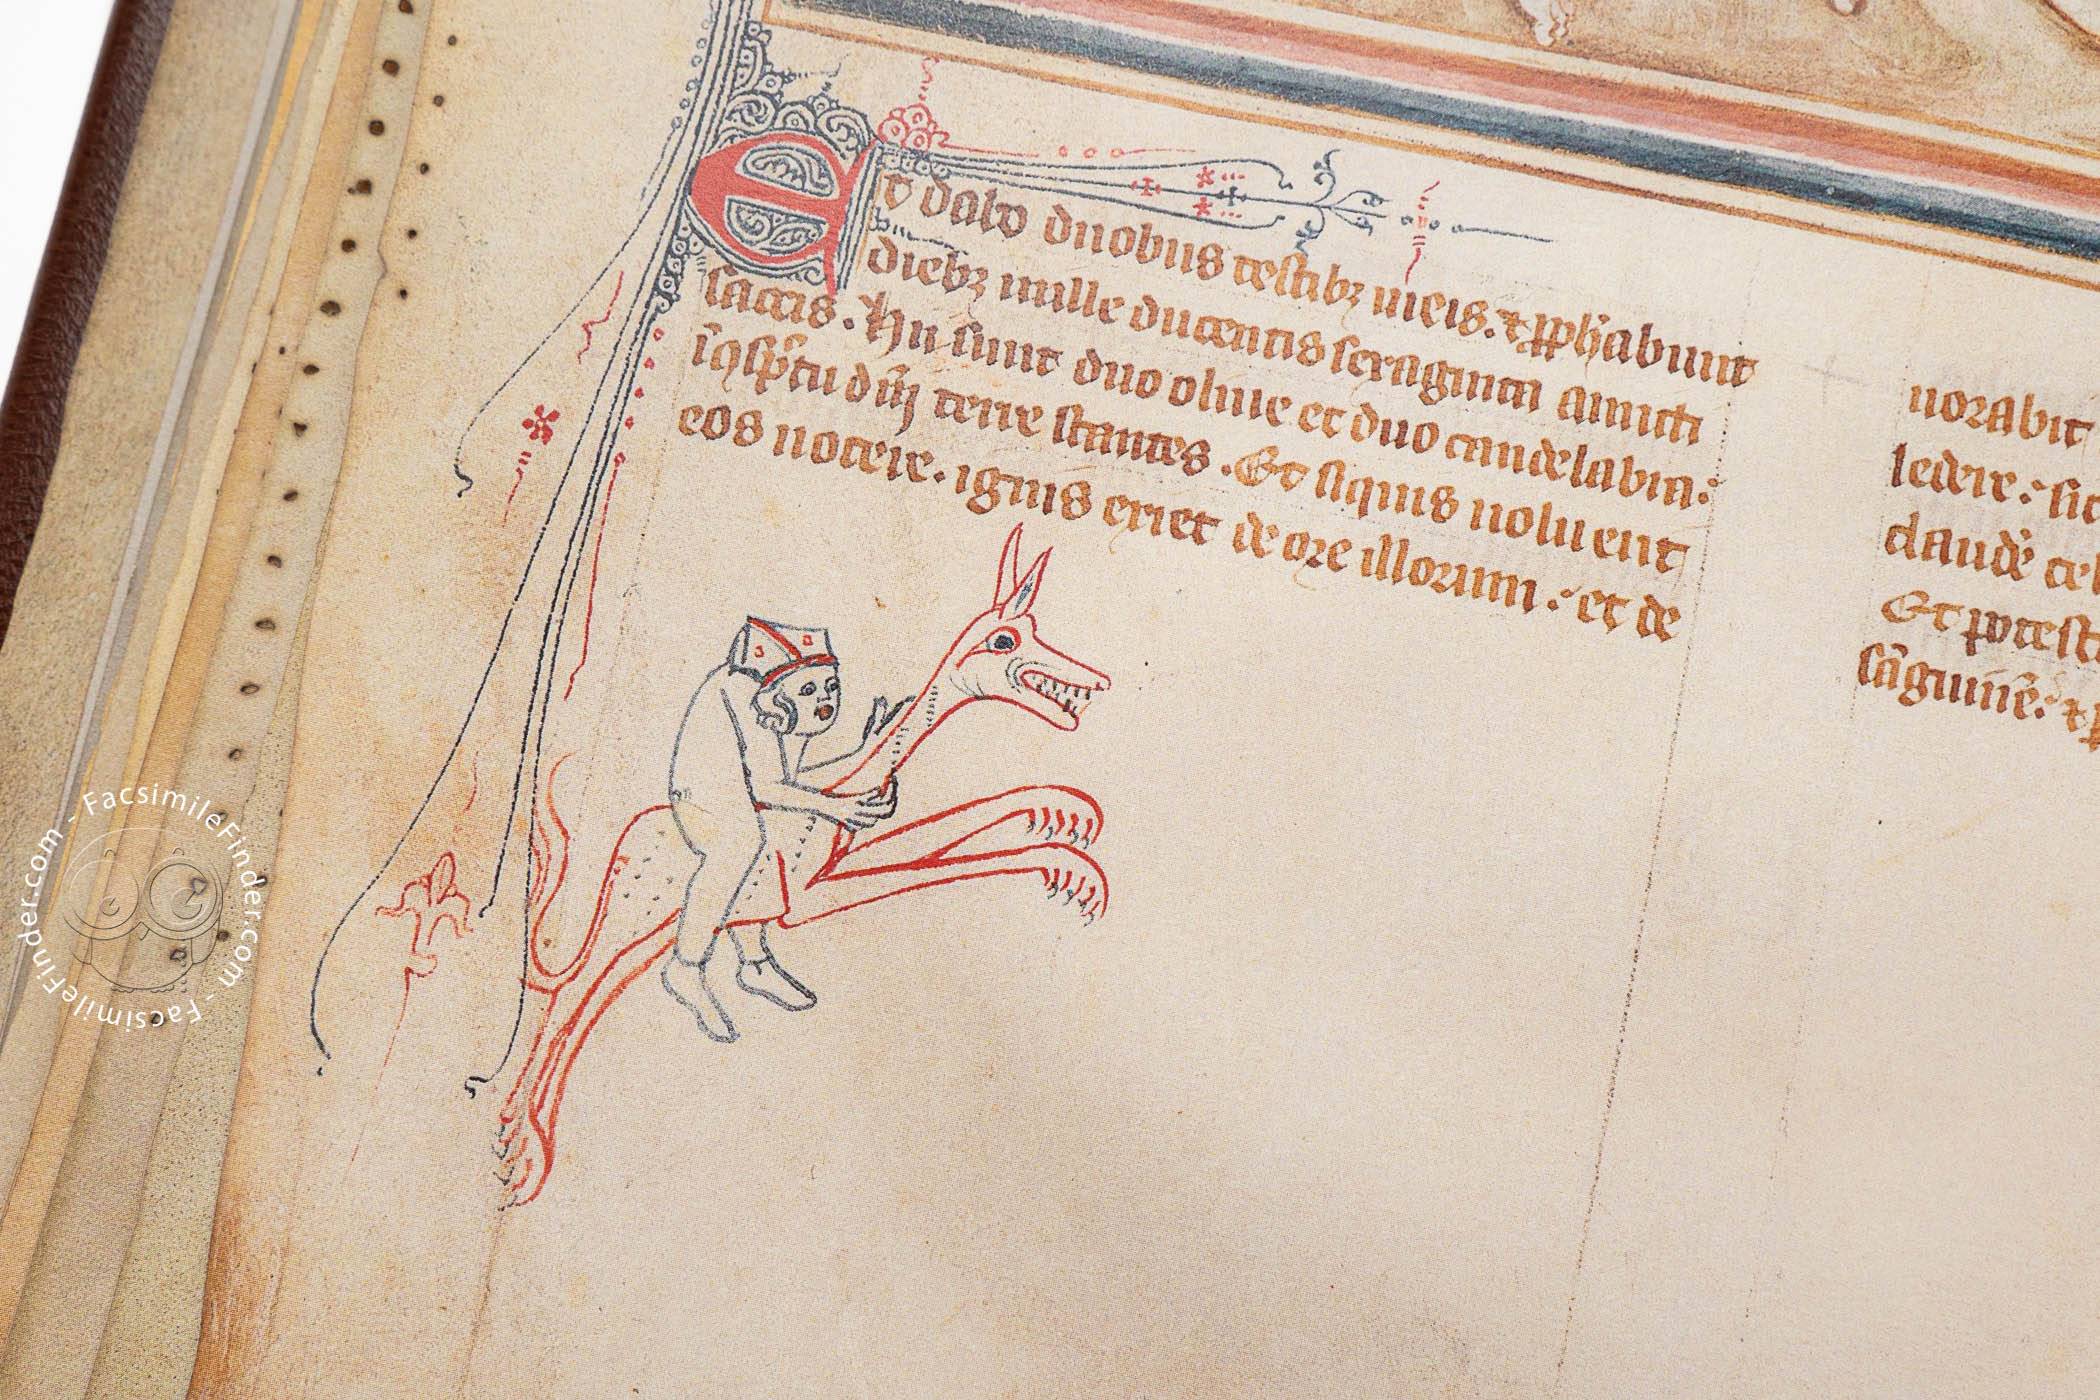 Et dabo duobus testibꝫ meis. ⁊ ꝓph̓abunt
diebꝫ mille ducentis sexaginta amicti
saccis. Hii sunt duo oliue et duo candelabra.
ī ɔspc̄tu dn̄i terre stantes. Et siquis uoluerit
eos nocere. ignis exiet de ore illorum. et de
uorabit
ledere. sic
claudē cel
Et potest
sāguinē. ⁊
FacsimileFinder.com - FacsimileFinder.com - FacsimileFinder.com